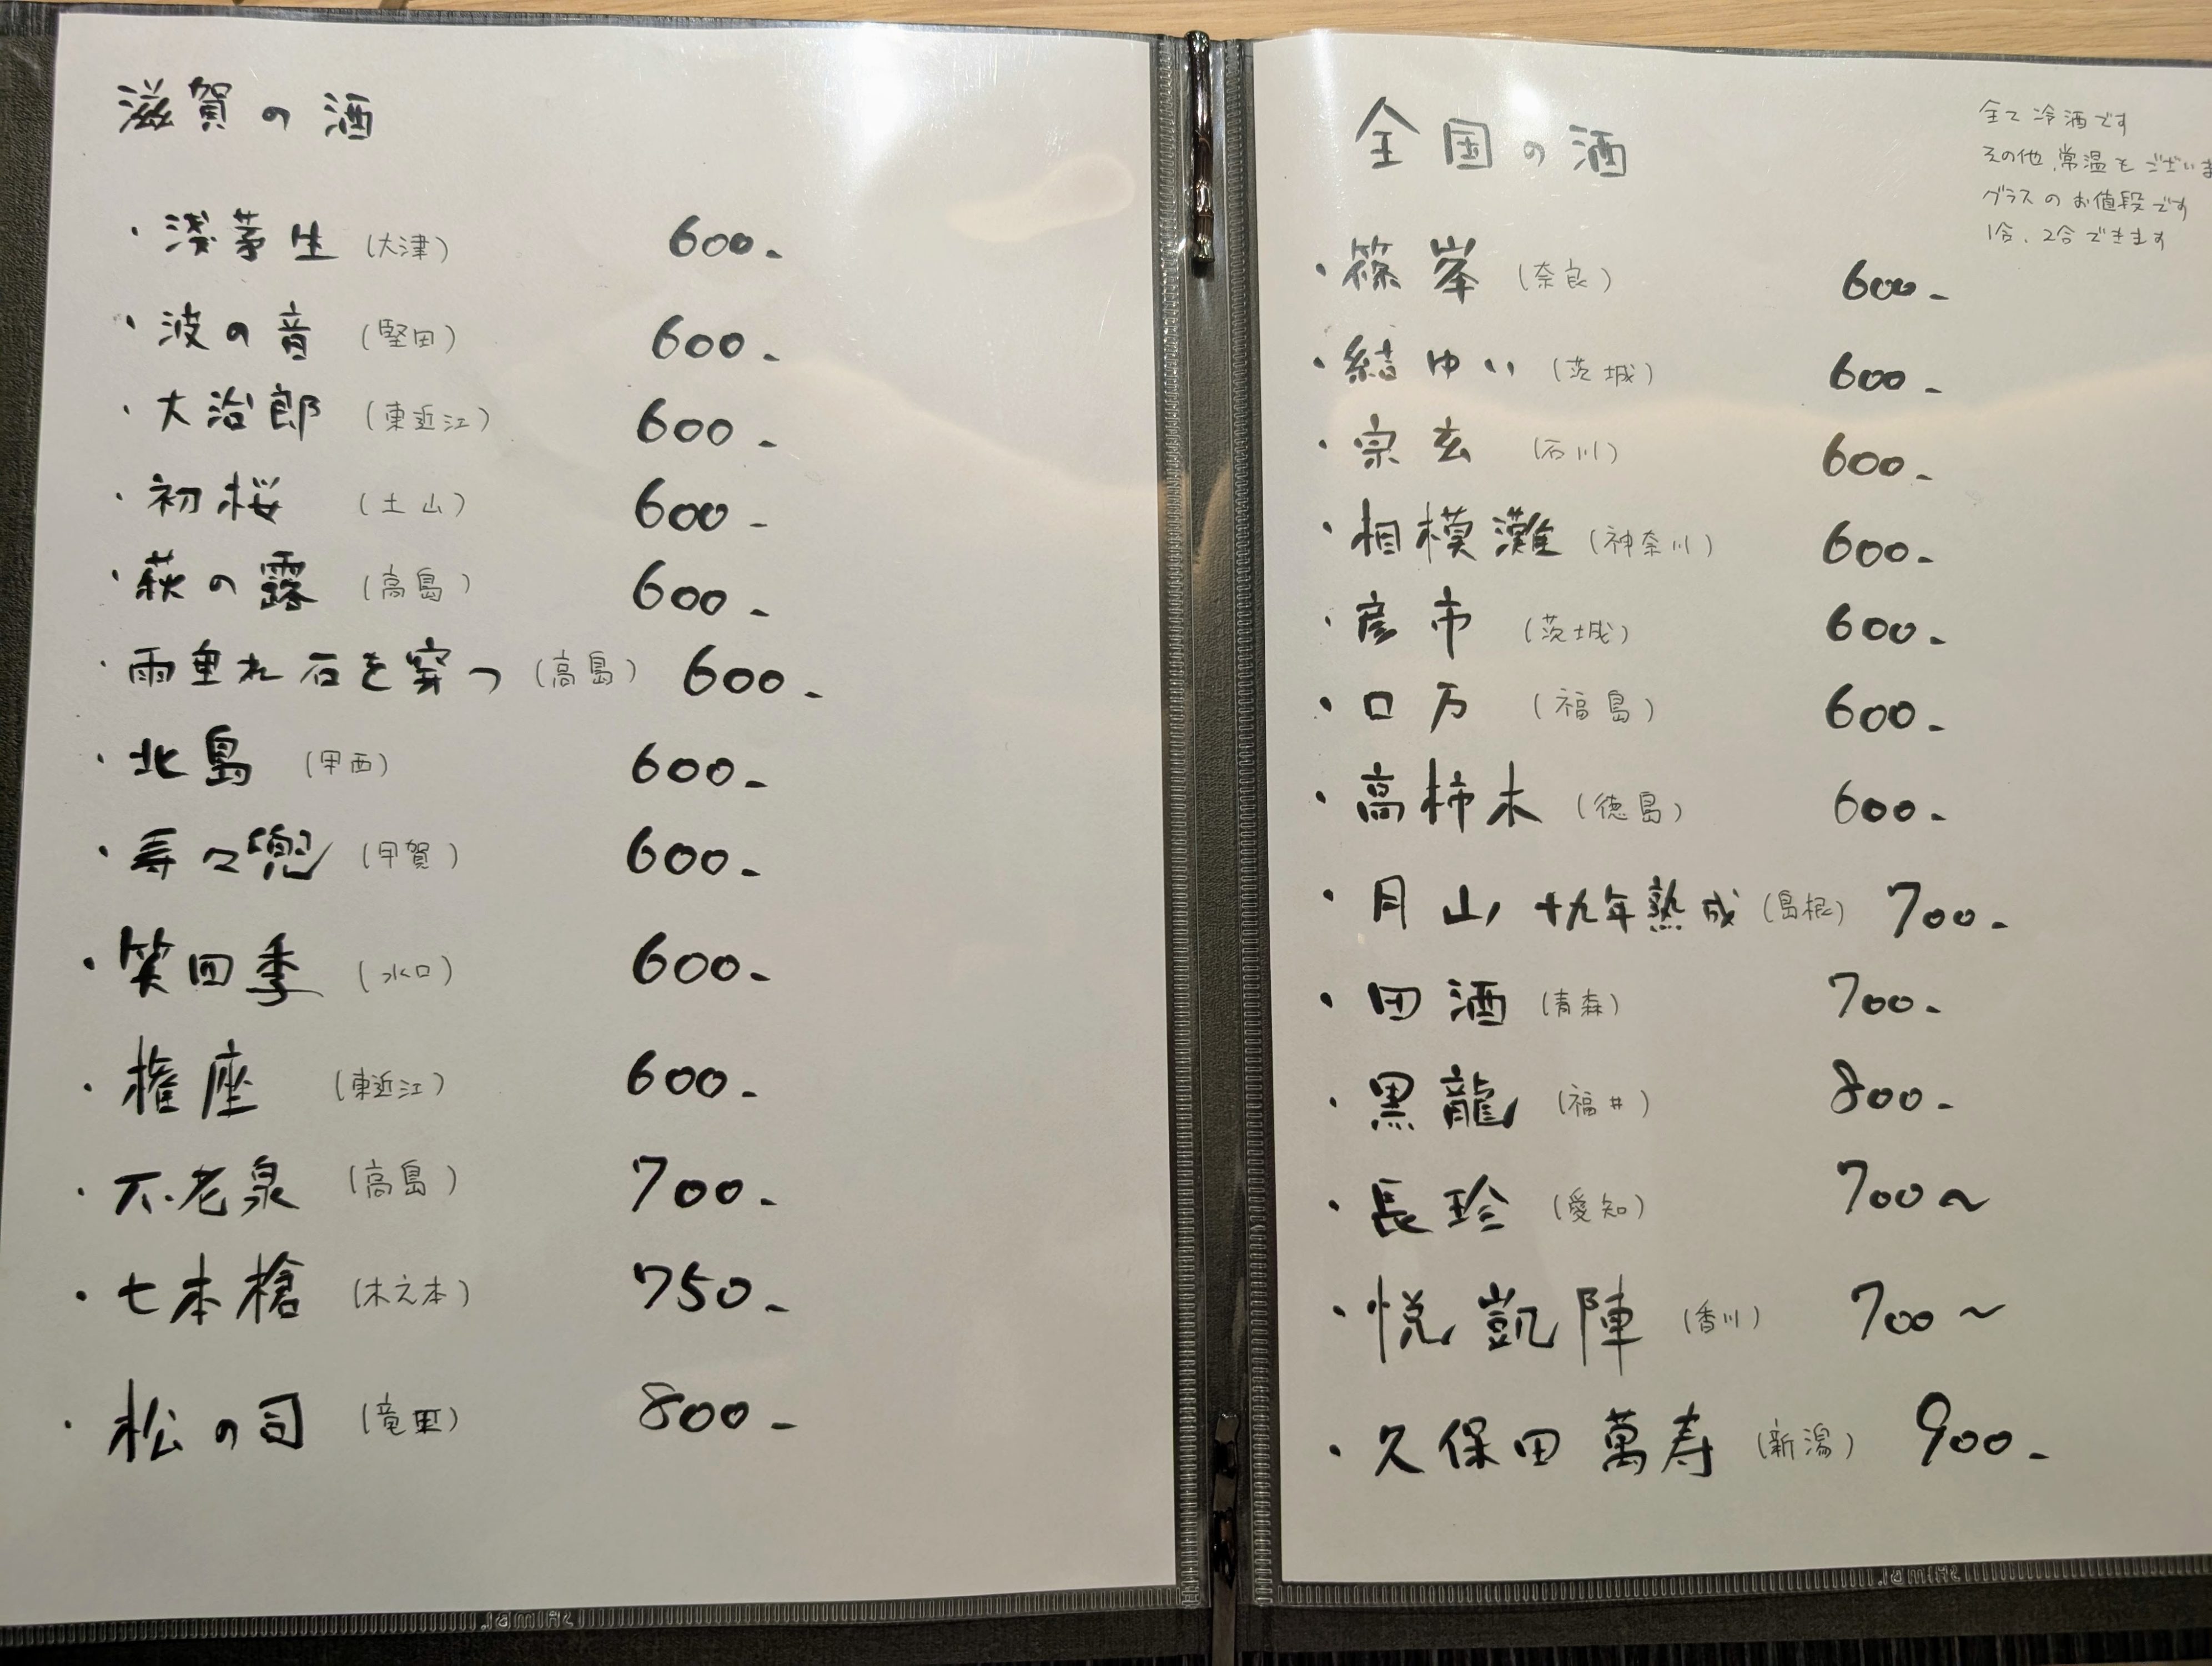 滋賀の酒
・浅茅生（大津） 600-
・波の音（堅田） 600-
・大治郎（東近江） 600-
・初桜（土山） 600-
・萩の露（高島） 600-
・雨垂れ石を穿つ（高島） 600-
・北島（甲西） 600-
・寿々兜（甲賀） 600-
・笑四季（水口） 600-
・権座（東近江） 600-
・不老泉（高島） 700-
・七本槍（木之本） 750-
・松の司（竜王） 800-
全国の酒
全て冷酒です
その他、常温もございま
グラスのお値段です
1合、2合できます
・篠峯（奈良） 600-
・結ゆい（茨城） 600-
・宗玄（石川） 600-
・相模灘（神奈川） 600-
・彦市（茨城） 600-
・ロ万（福島） 600-
・高柿木（徳島） 600-
・月山 十九年熟成（島根） 700-
・田酒（青森） 700-
・黒龍（福井） 800-
・長珍（愛知） 700〜
・悦凱陣（香川） 700〜
・久保田 萬寿（新潟） 900-